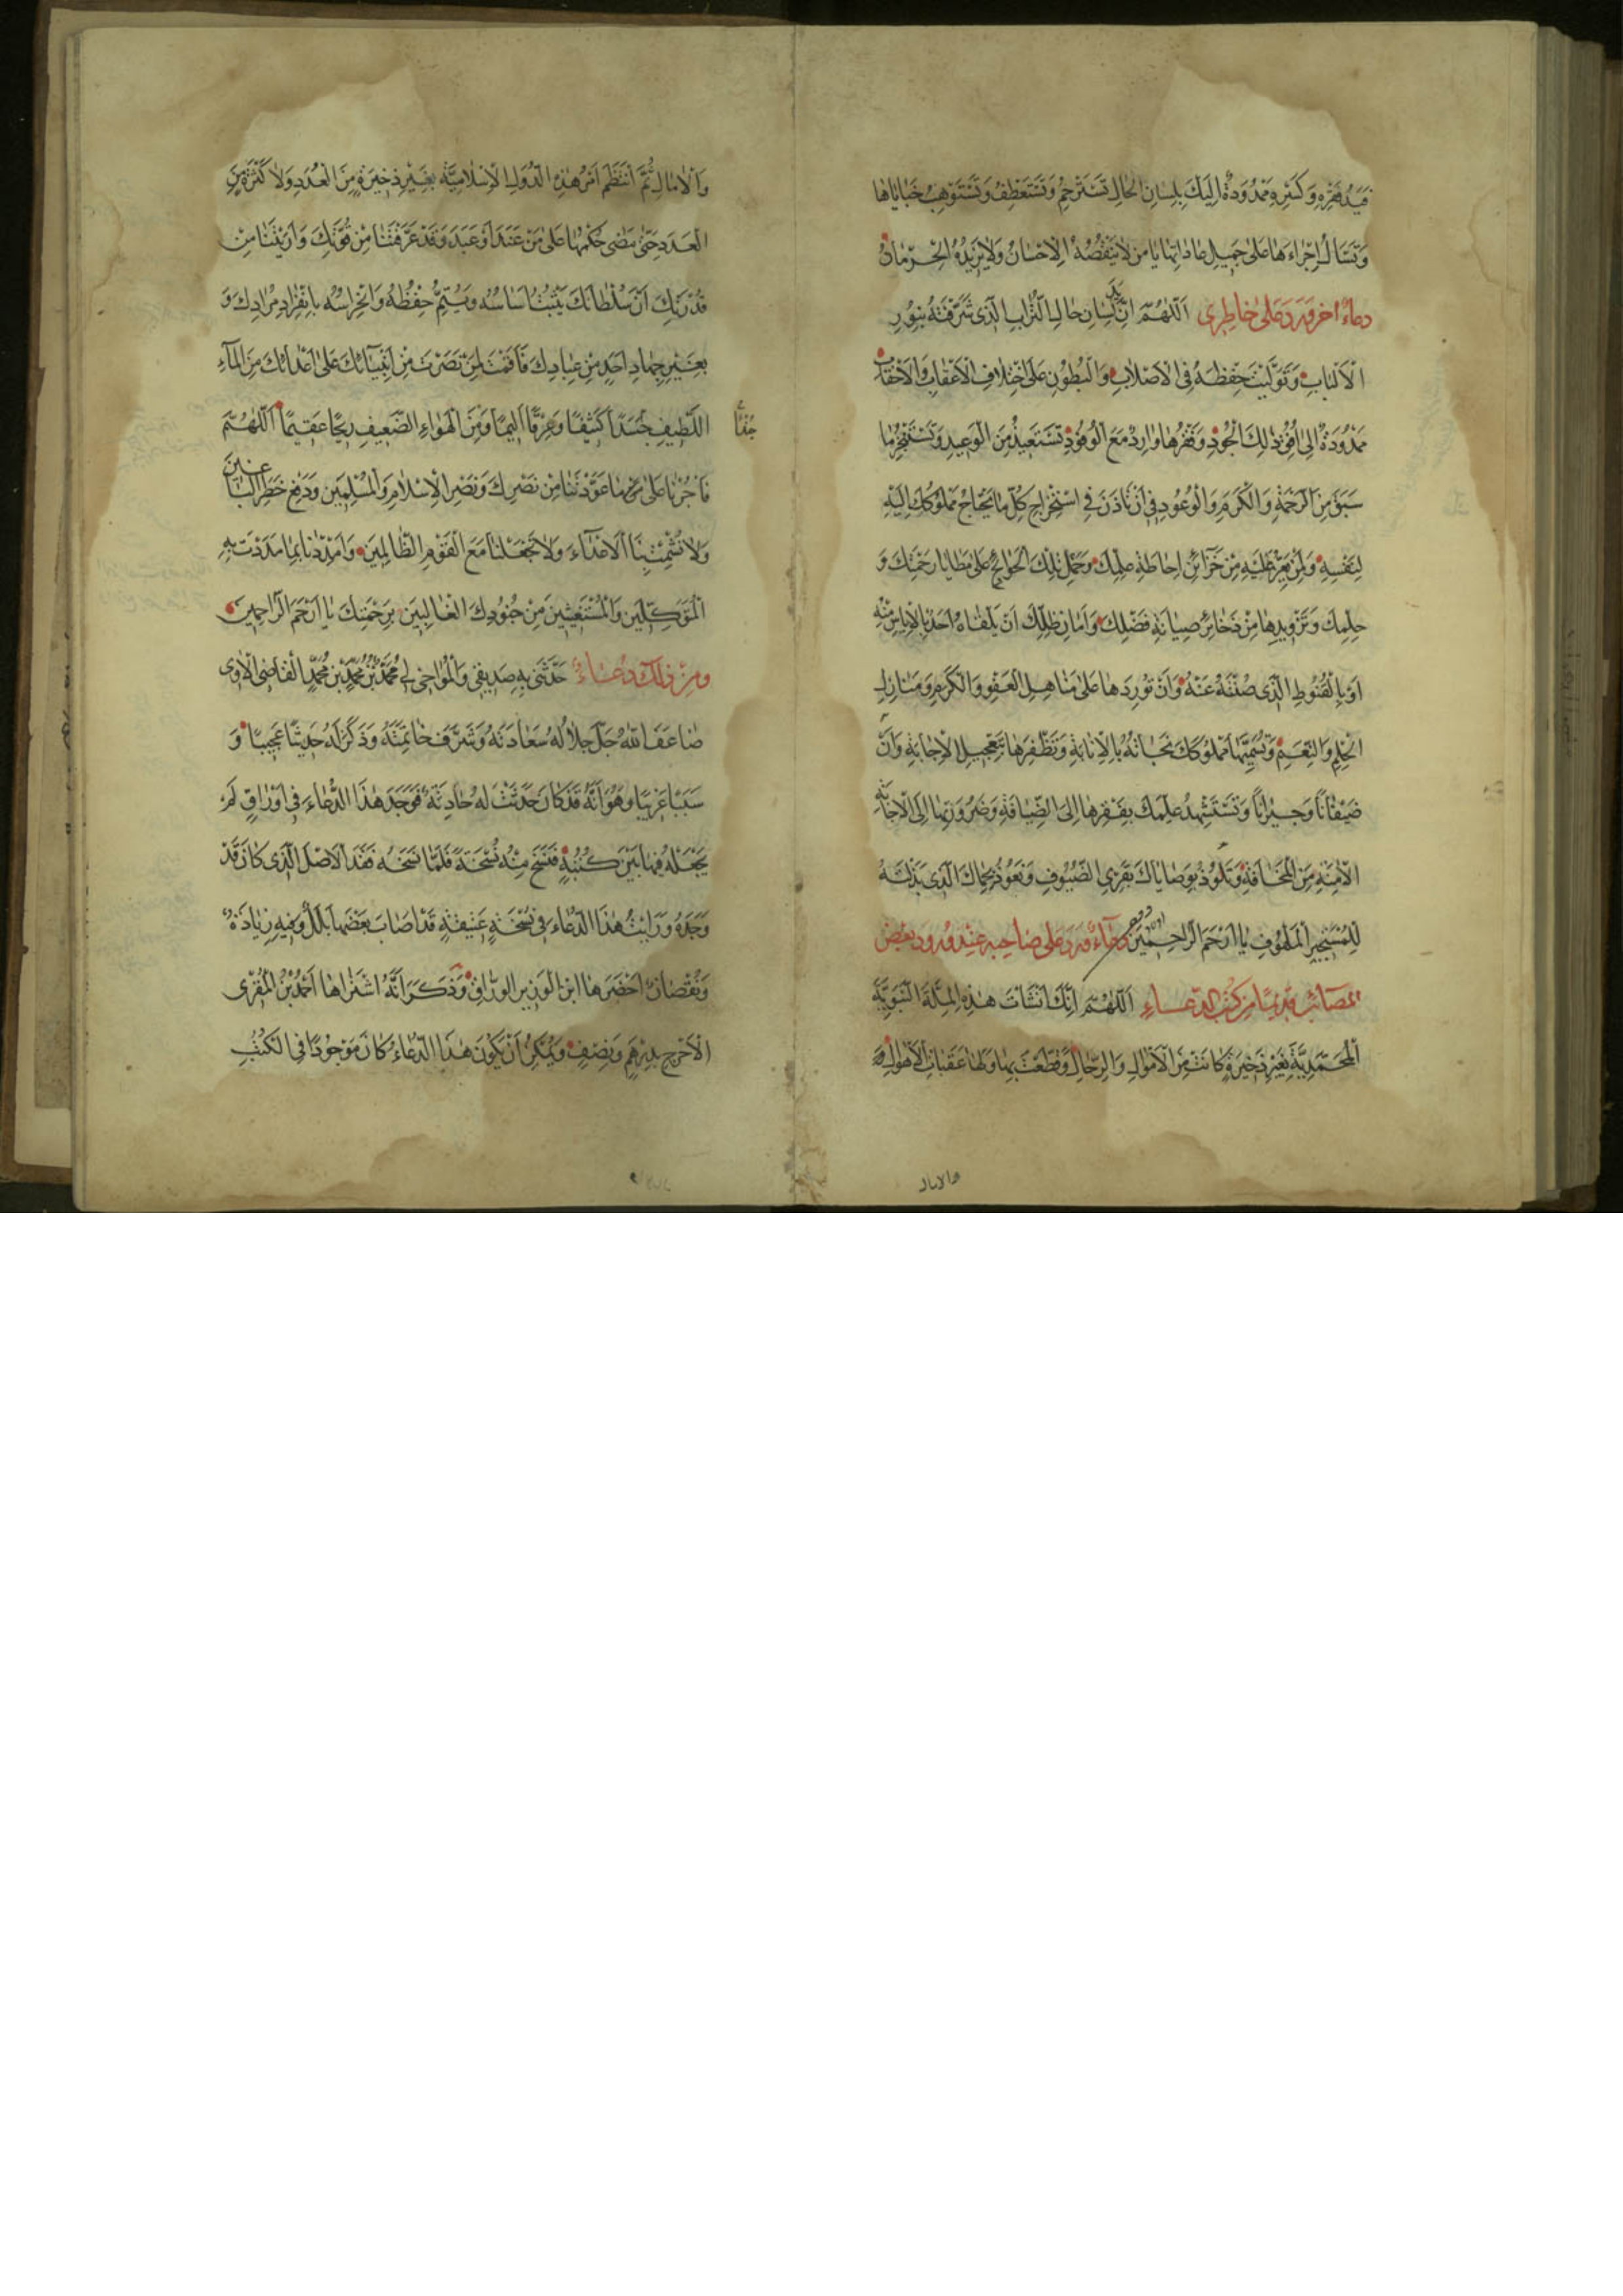 فقره وكسره ممدودة اليك بلسان الحال تسترحم وتستعطف وتستوهب خباياها
وتسال اجراءها على جميل عاداتها يا من لا ينقصه الاحسان ولا يزيده الحرمان
دعاء اخر ورد على خاطرى اللهم ان لسان حال التراب الذى شرفته بنور
الالباب وتوليت حفظه فى الاصلاب والبطون على اختلاف الاعقاب والاحقاب
ممدودة الى افق ذلك الجود وفقرها وارد مع الوفود تستعيذ من الوعيد وتستنجز ما
سبق من الرحمة والكرم والوعود فى ان تاذن فى استخراج كل ما يحتاج مملوكك اليه
لنفسه ولمن يعز عليه من خزائن احاطة علمك وحمل تلك الحوائج على مطايا رحمتك و
حلمك وتزويدها من ذخائر صيانة فضلك وامان ظلك ان يلقاه احد بالاياس منه
او بالقنوط الذى صنته عنه وان توردها على مناهل العفو والكرم ومنازل
الحلم والنعم وتسميها مملوكك نجاته بالانابة وتظفرها بتعجيل الاجابة وان
ضيفانا وجيرانا وتستشهد علمك بفقرها الى الضيافة وضرورتها الى الاجابة
الامنة من المخافة وتلوذ بوصاياك بقرى الضيوف وتعوذ بحماك الذى بذلته
للمستجير الملهوف يا ارحم الراحمين دعاء ورد على صاحبه عند ورود بعض
المصائب قديما من كتب الدعاء اللهم انك انشات هذه الملة النبوية
المحمدية بغير ذخيرة كانت من الاموال والرجال وقطعت بها ولها عقبات الاهوال و
والامال
والامال ثم انتظم امر هذه الدولة الاسلامية بغير ذخيرة من العدد ولا كثرة من
العدد حتى مضى حكمها على من عند او عبد وقد عرفتنا من قوتك واريتنا من
قدرتك ان سلطانك يثبت اساسه ويستمر حفظه وانحراسه بانفراد مرادك و
بغير جهاد احد من عبادك فاقمت لمن نصرت من انبيائك على اعدائك من الماء
اللطيف جسدا كثيفا وغرقا اليما ومن الهواء الضعيف ريحا عقيما اللهم
فاجرنا على ما عودتنا من نصرك ونصر الاسلام والمسلمين ودفع خطر الباغين
ولا تشمت بنا الاعداء ولا تجعلنا مع القوم الظالمين وامددنا بما مددت به
المتوكلين والمستغيثين من جنودك الغالبين برحمتك يا ارحم الراحمين
ومن ذلك دعاء حدثنى به صديقى والمواخى لى محمد بن محمد بن محمد القاضى الاوى
ضاعف الله جل جلاله سعادته وشرف خاتمته وذكر له حديثا عجيبا و
سببا غريبا وهو انه قد كان حدثت له حادثة فوجد هذا الدعاء فى اوراق لم
يجعله فيها بين كتبه فنسخ منه نسخة فلما نسخه فقد الاصل الذى كان قد
وجده ورايت هذا الدعاء فى نسخة عتيقة قد اصاب بعضها بلل وفيه زيادة
ونقصان احضرها ابن الوزير الوراق وذكر انه اشتراها احمد بن المقرى
الاخرج بدرهم ونصف ويمكن ان يكون هذا الدعاء كان موجودا فى الكتب